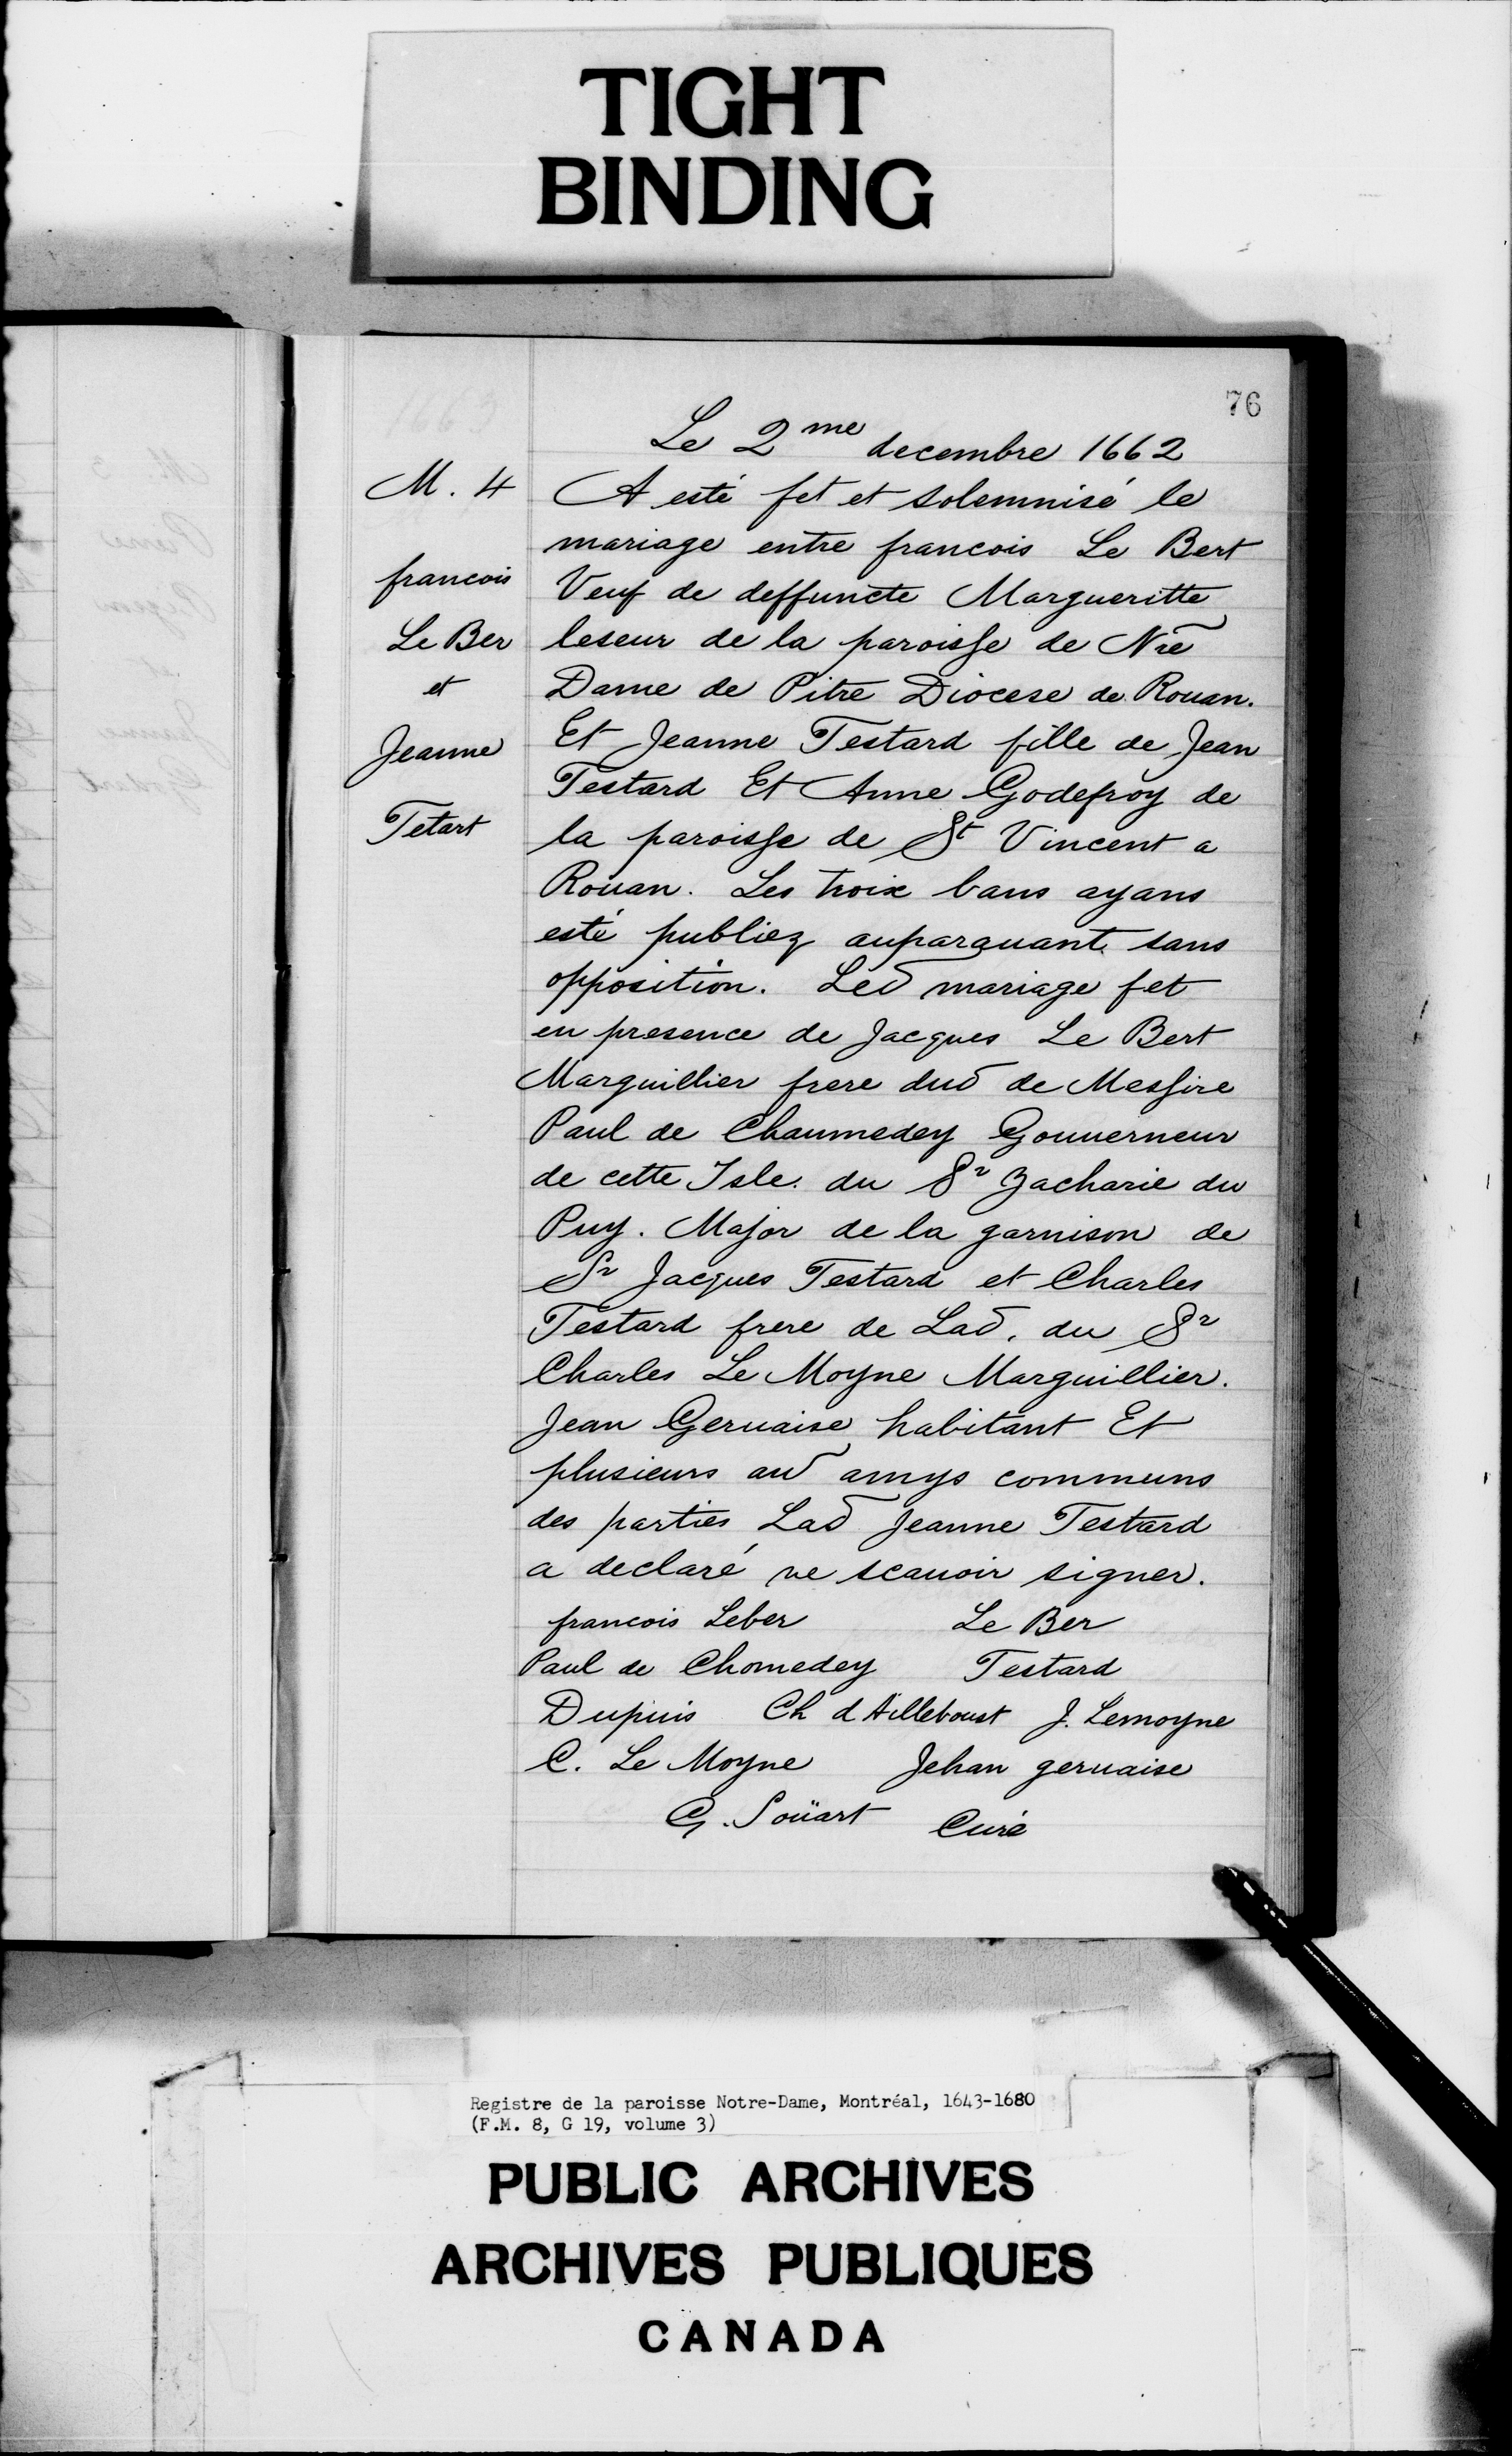 TIGHT
BINDING
76
Le 2me decembre 1662
M. 4
A esté fet et solemnisé le
mariage entre francois Le Bert
francois
Veuf de deffuncte Margueritte
Le Ber
leseur de la paroisse de Nre
et
Dame de Pitre Diocese de Rouan.
Jeanne
Et Jeanne Testard fille de Jean
Testard Et Anne Godefroy de
Tetart
la paroisse de St Vincent a
Rouan. Les troix bans ayans
esté publiez auparauant sans
opposition. Led mariage fet
en presence de Jacques Le Bert
Marguillier frere dud de Messire
Paul de Chaumedey Gouuerneur
de cette Isle. du Sr Zacharie du
Puy. Major de la garnison de
Sr Jacques Testard et Charles
Testard frere de Lad. du Sr
Charles Le Moyne Marguillier.
Jean Geruaise habitant Et
plusieurs aud amys communs
des parties Lad Jeanne Testard
a declaré ne scauoir signer.
francois Leber Le Ber
Paul de Chomedey Testard
Dupuis Ch d Ailleboust J. Lemoyne
C. Le Moyne Jehan geruaise
G. Soüart Curé
Registre de la paroisse Notre-Dame, Montréal, 1643-1680
(F.M. 8, G 19, volume 3)
PUBLIC ARCHIVES
ARCHIVES PUBLIQUES
CANADA